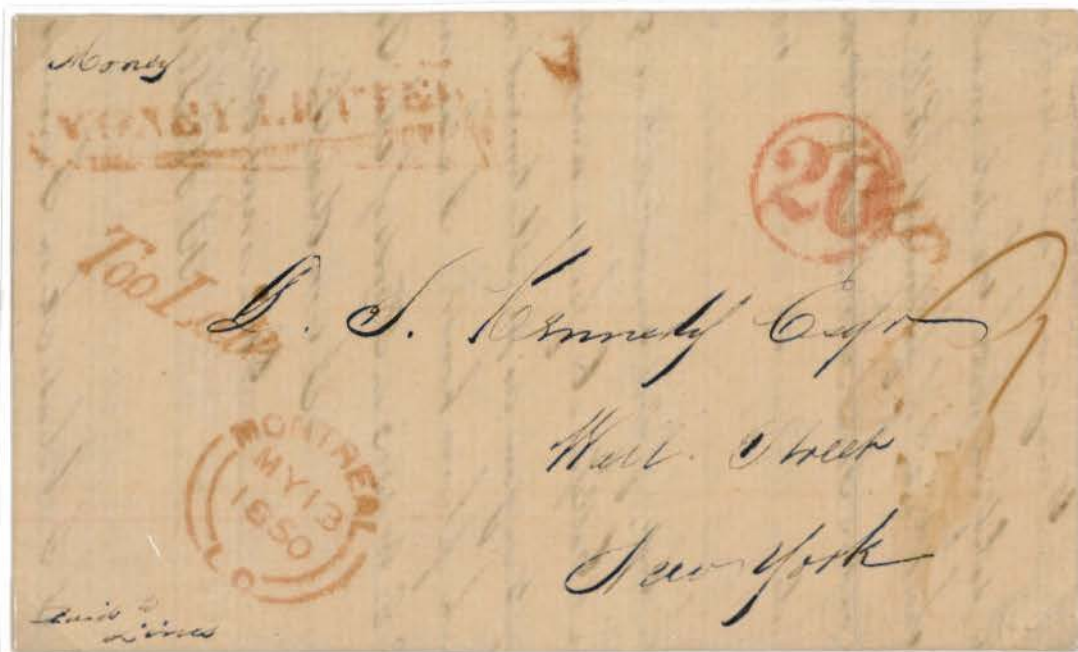 Money
MONEY LETTER
20
Too Late
D. S. Kennedy Esqr
Wall Street
New York
MONTREAL
MY 13
1850
L.C
Lines